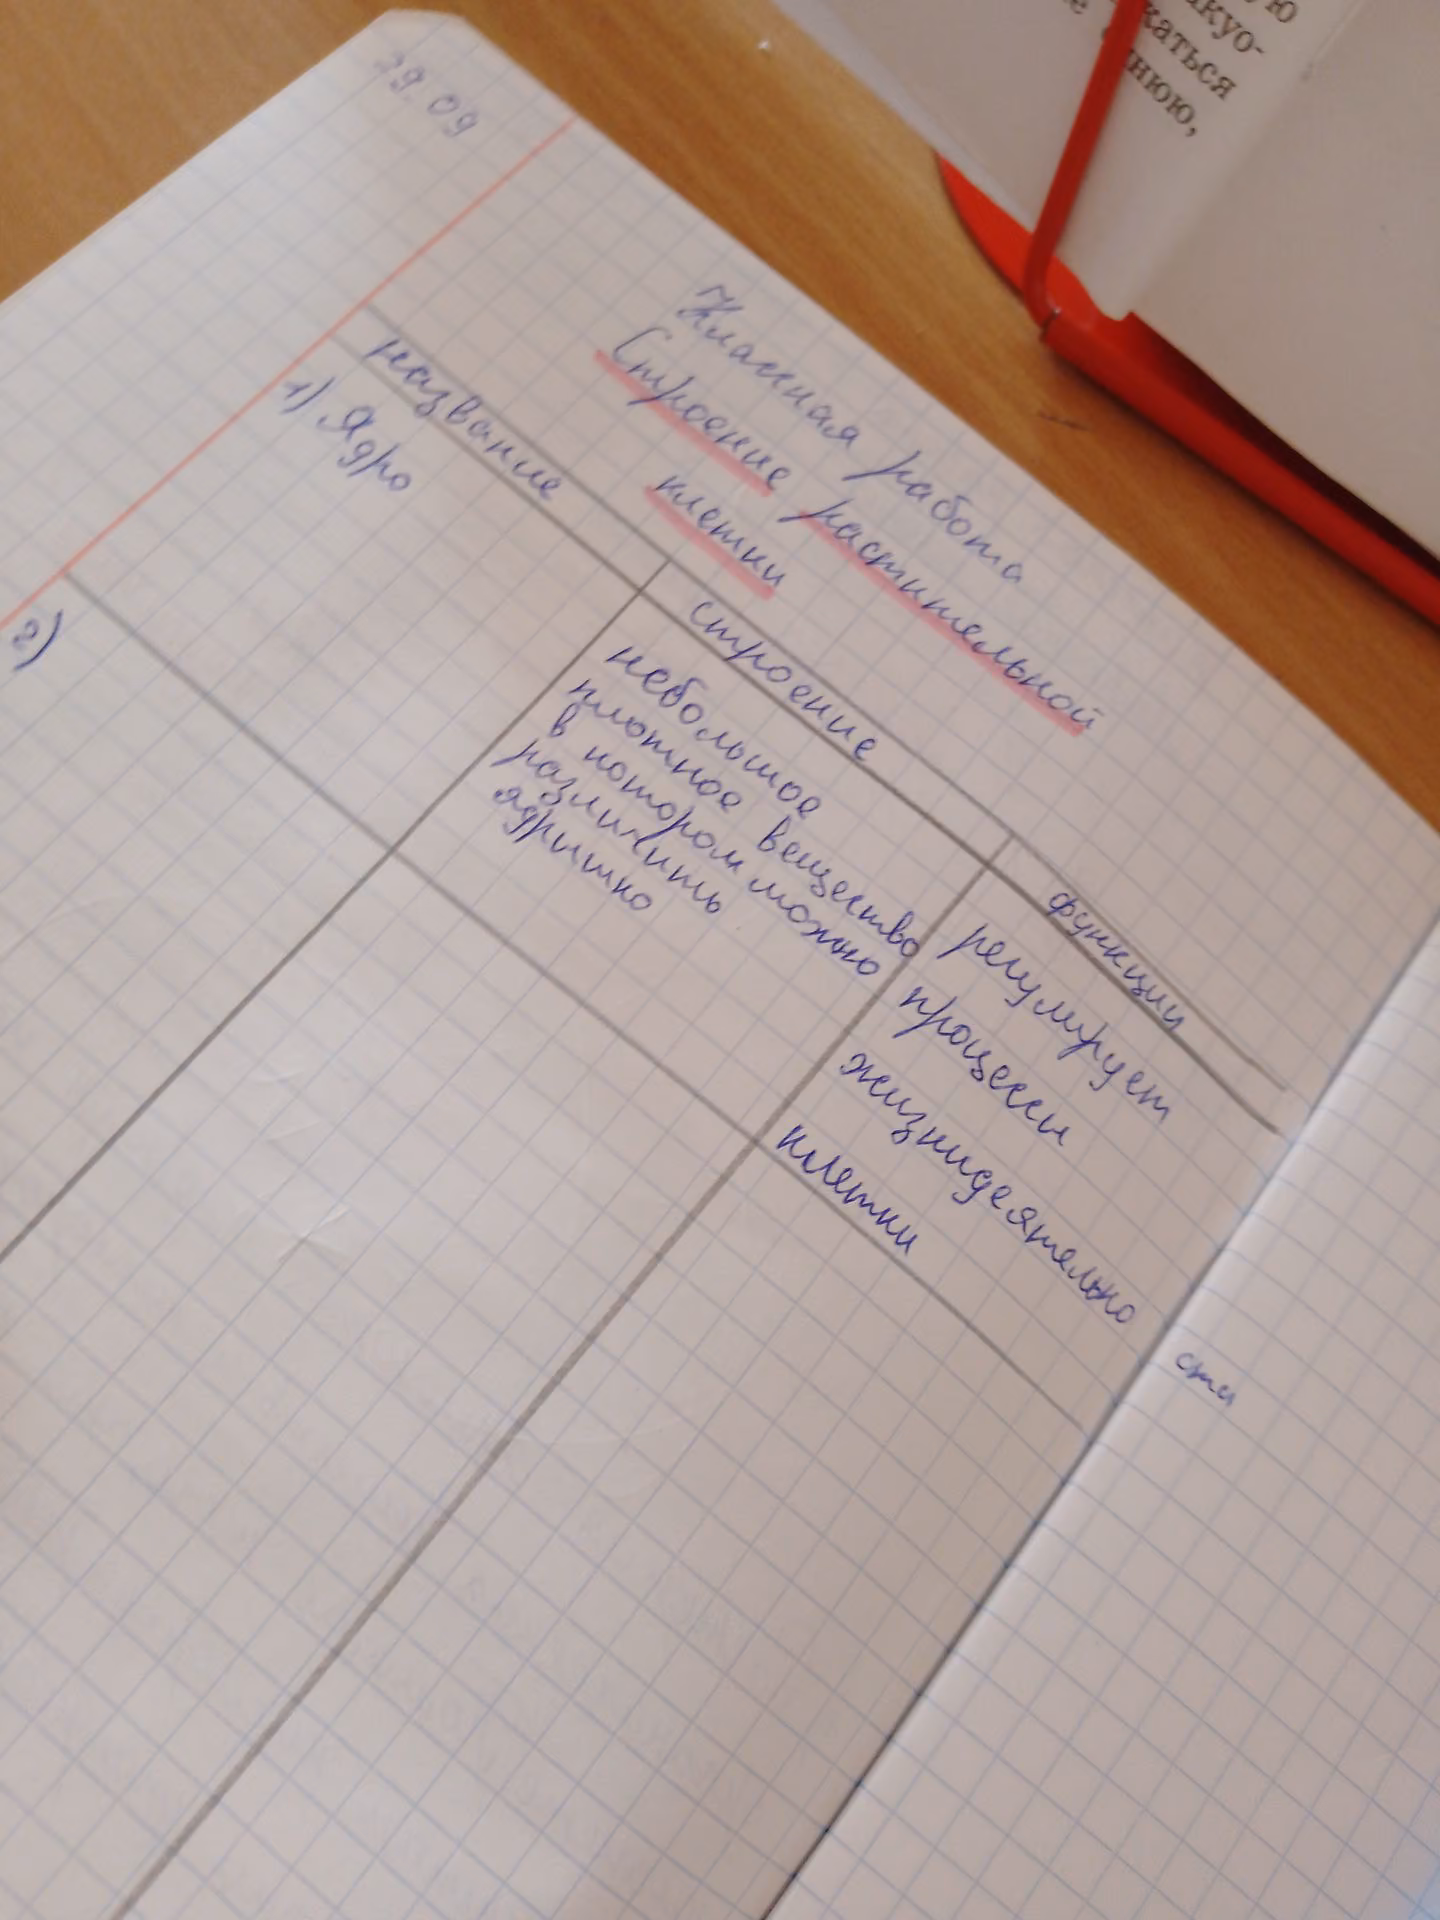 29 09
Классная работа
Строение растительной
клетки
название
строение
функции
1) Ядро
небольшое
плотное вещество
в котором можно
различить
ядрышко
регулирует
процессы
жизнидеятельно
сти
клетки
2)
каться
нюю,